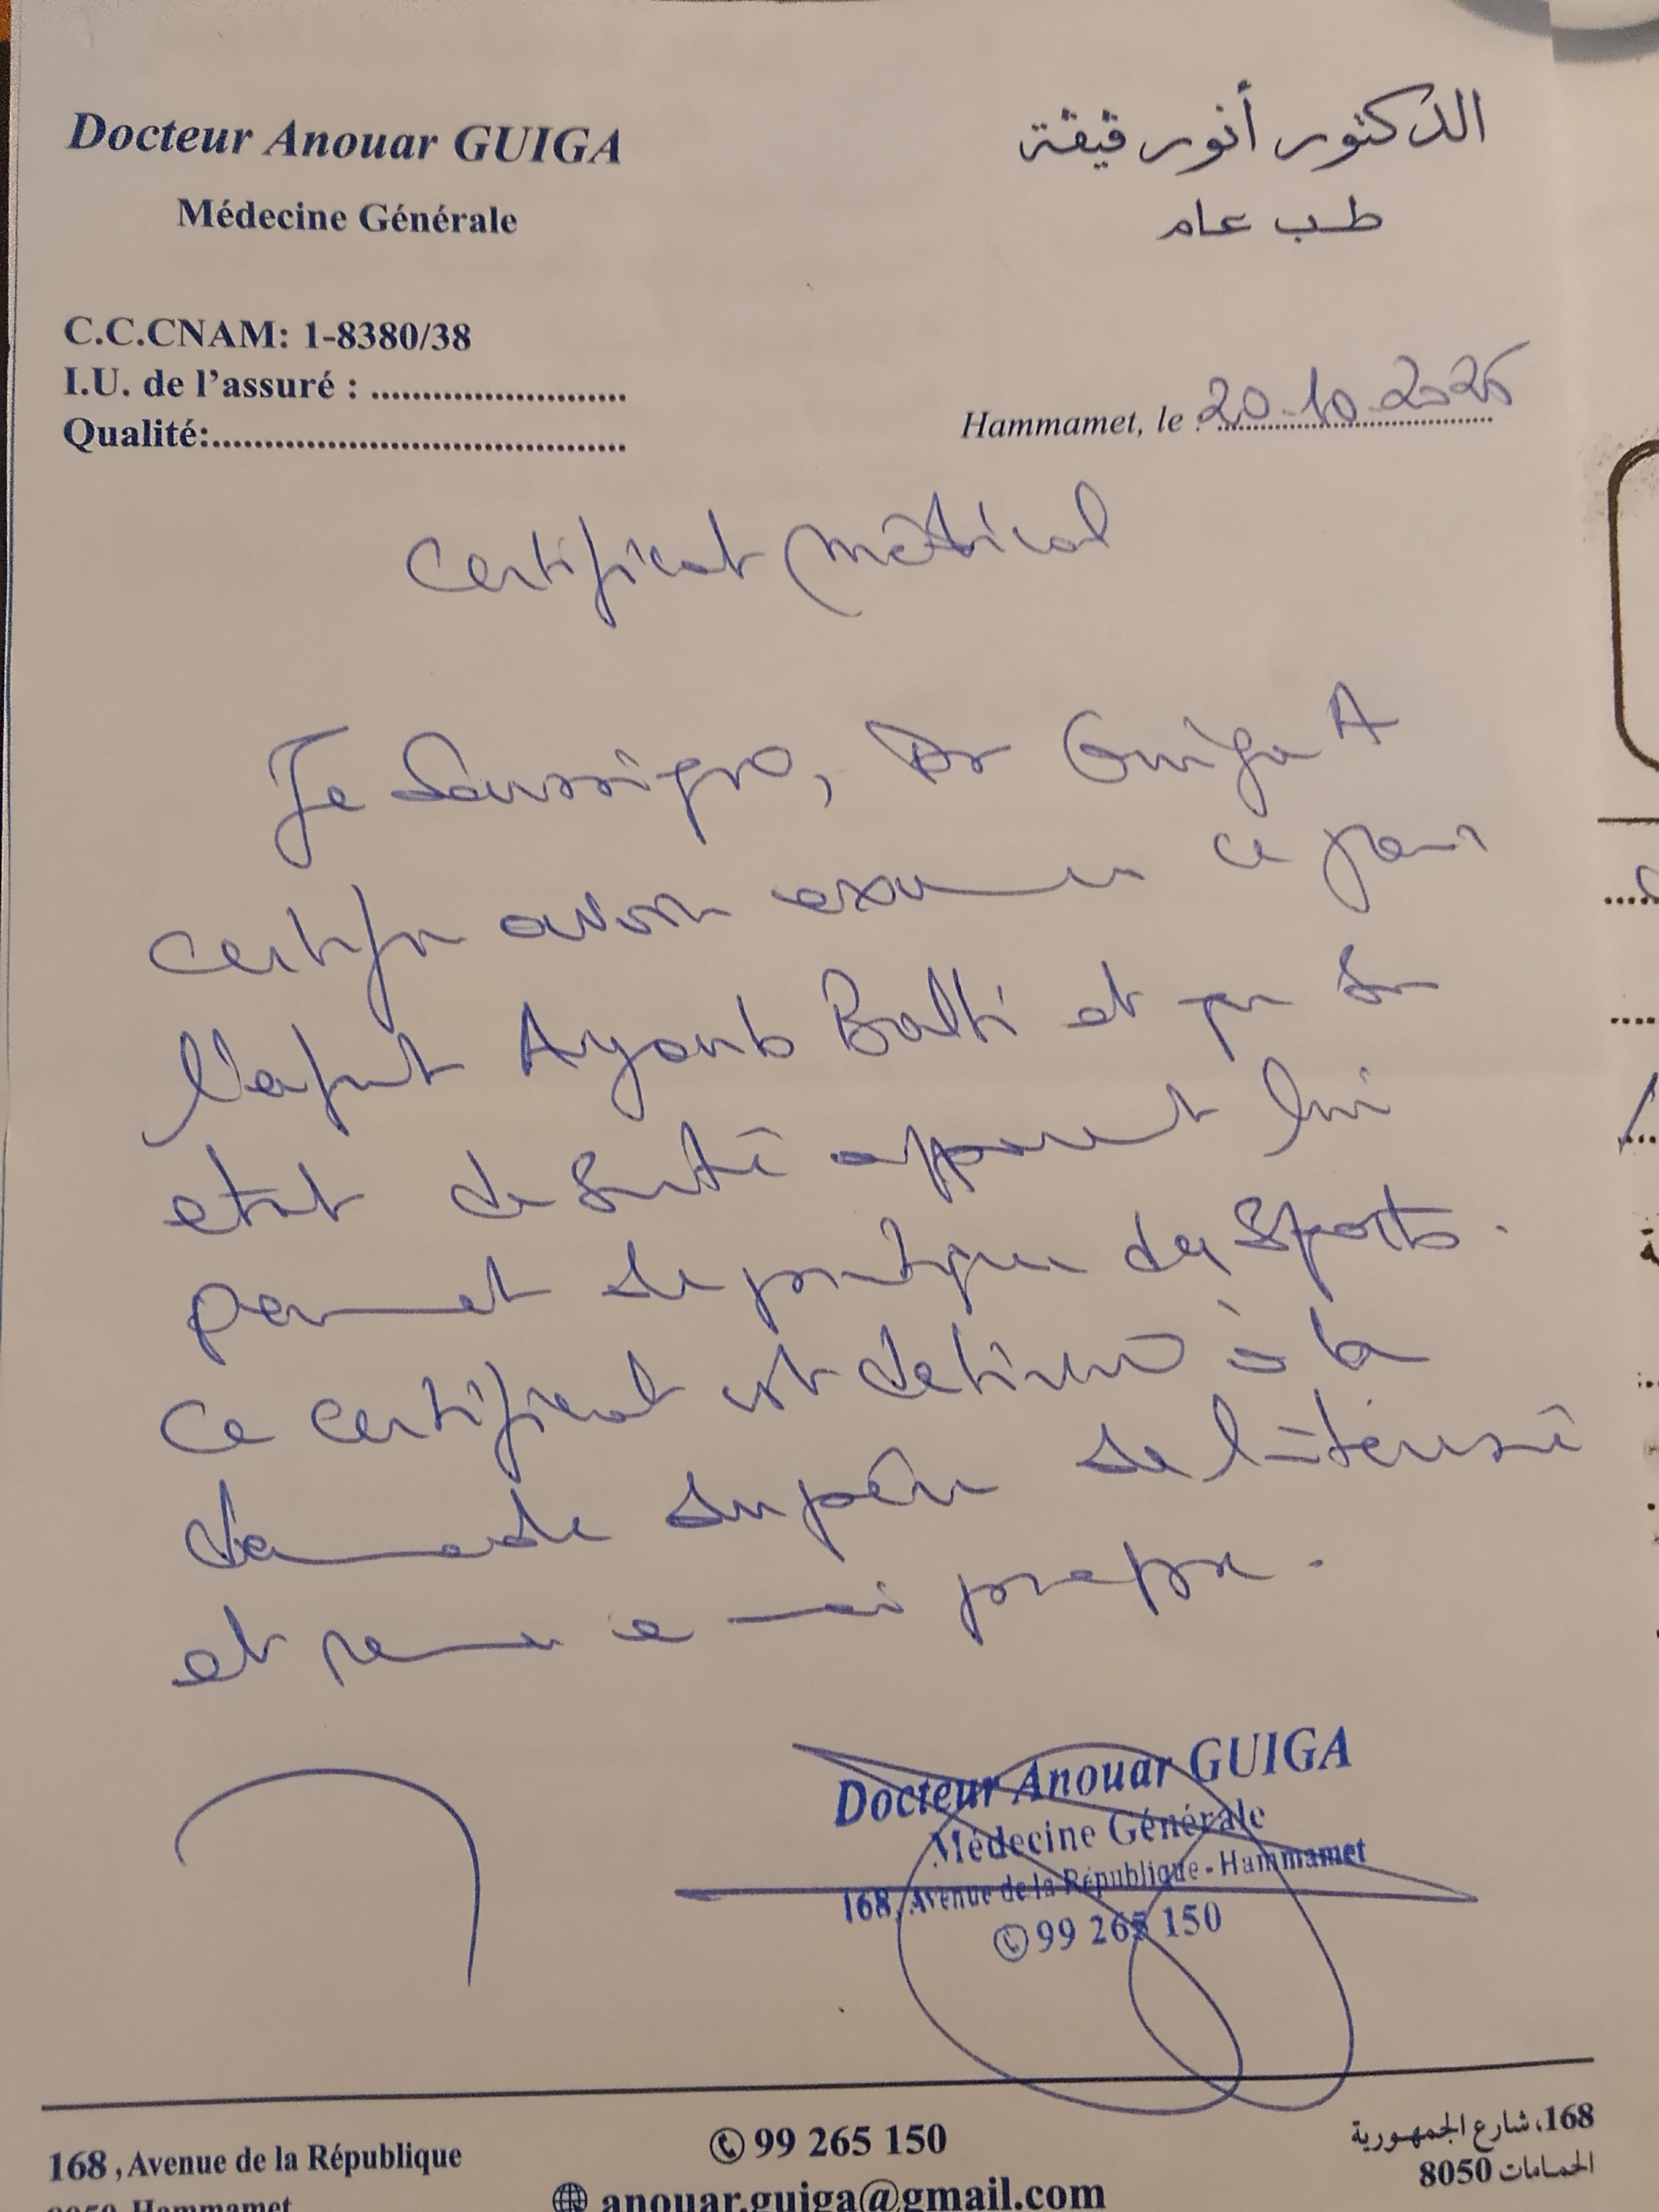 Docteur Anouar GUIGA
Médecine Générale
الدكتور أنور قيقة
طب عام
C.C.CNAM: 1-8380/38
I.U. de l'assuré : ..........................
Qualité:..........................................
Hammamet, le : 20.10.2025
Certificat Médical
Je Soussigné, Dr Guiga A
certifie avoir examiné ce jour
l'enfant Ayoub Balti et que son
etat de Santé apparent lui
permet de pratiquer des Sports.
Ce certificat est délivré à la
demande du père de l'intéressé
et remis en main propre.
Docteur Anouar GUIGA
Médecine Générale
168, Avenue de la République - Hammamet
99 265 150
168 , Avenue de la République
8050 Hammamet
99 265 150
anouar.guiga@gmail.com
168، شارع الجمهورية
الحمامات 8050